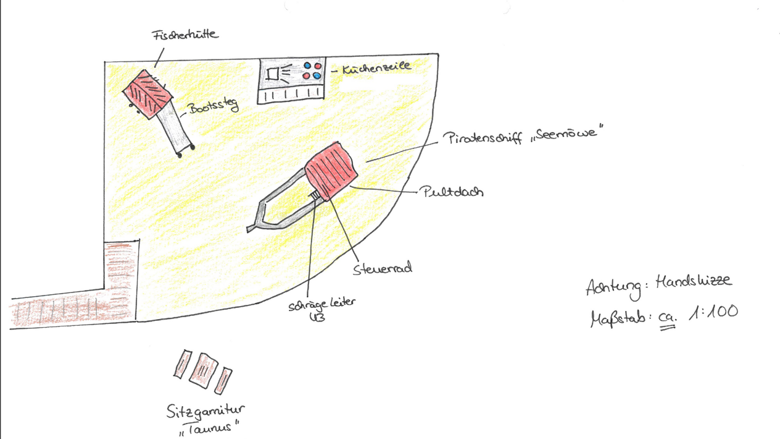 Fischerhütte
- Küchenzeile
Bootssteg
Piratenschiff „Seemöwe"
Pultdach
Steuerrad
schräge Leiter
U3
Achtung: Handskizze
Maßstab: ca. 1:100
Sitzgarnitur
„Taunus"